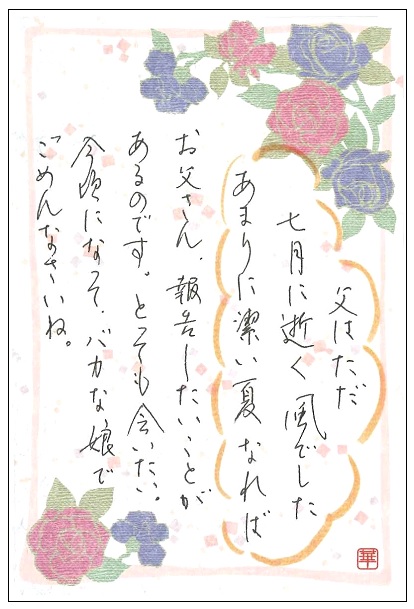 父はただ
七月に逝く風でした
あまりに潔い夏なれば
お父さん、報告したいことが
あるのです。とっても会いたい。
今頃になって、バカな娘で
ごめんなさいね。
華